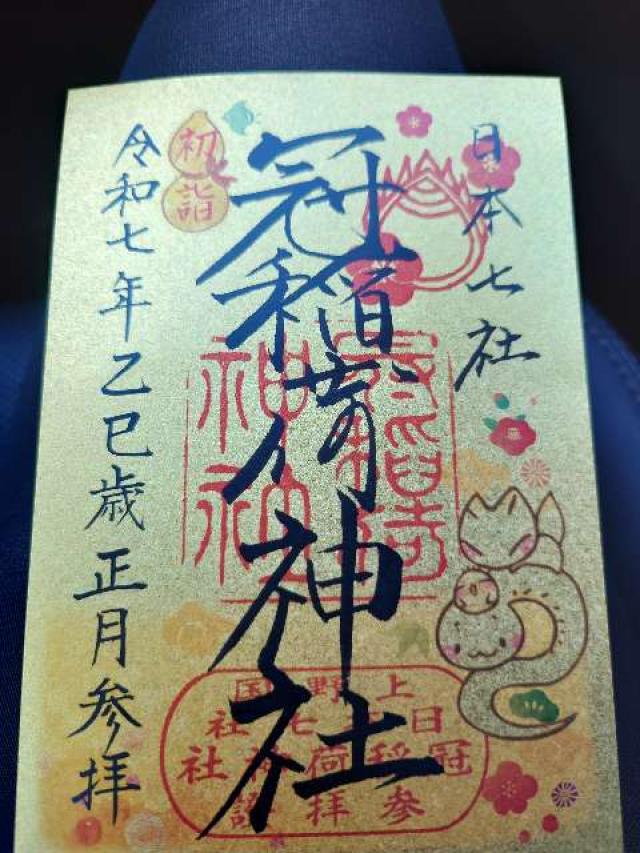 日本七社
冠稲荷神社
初詣
令和七年乙巳歳正月参拝
冠稲荷
神社
上野国
日本七社
冠稲荷神社
参拝證